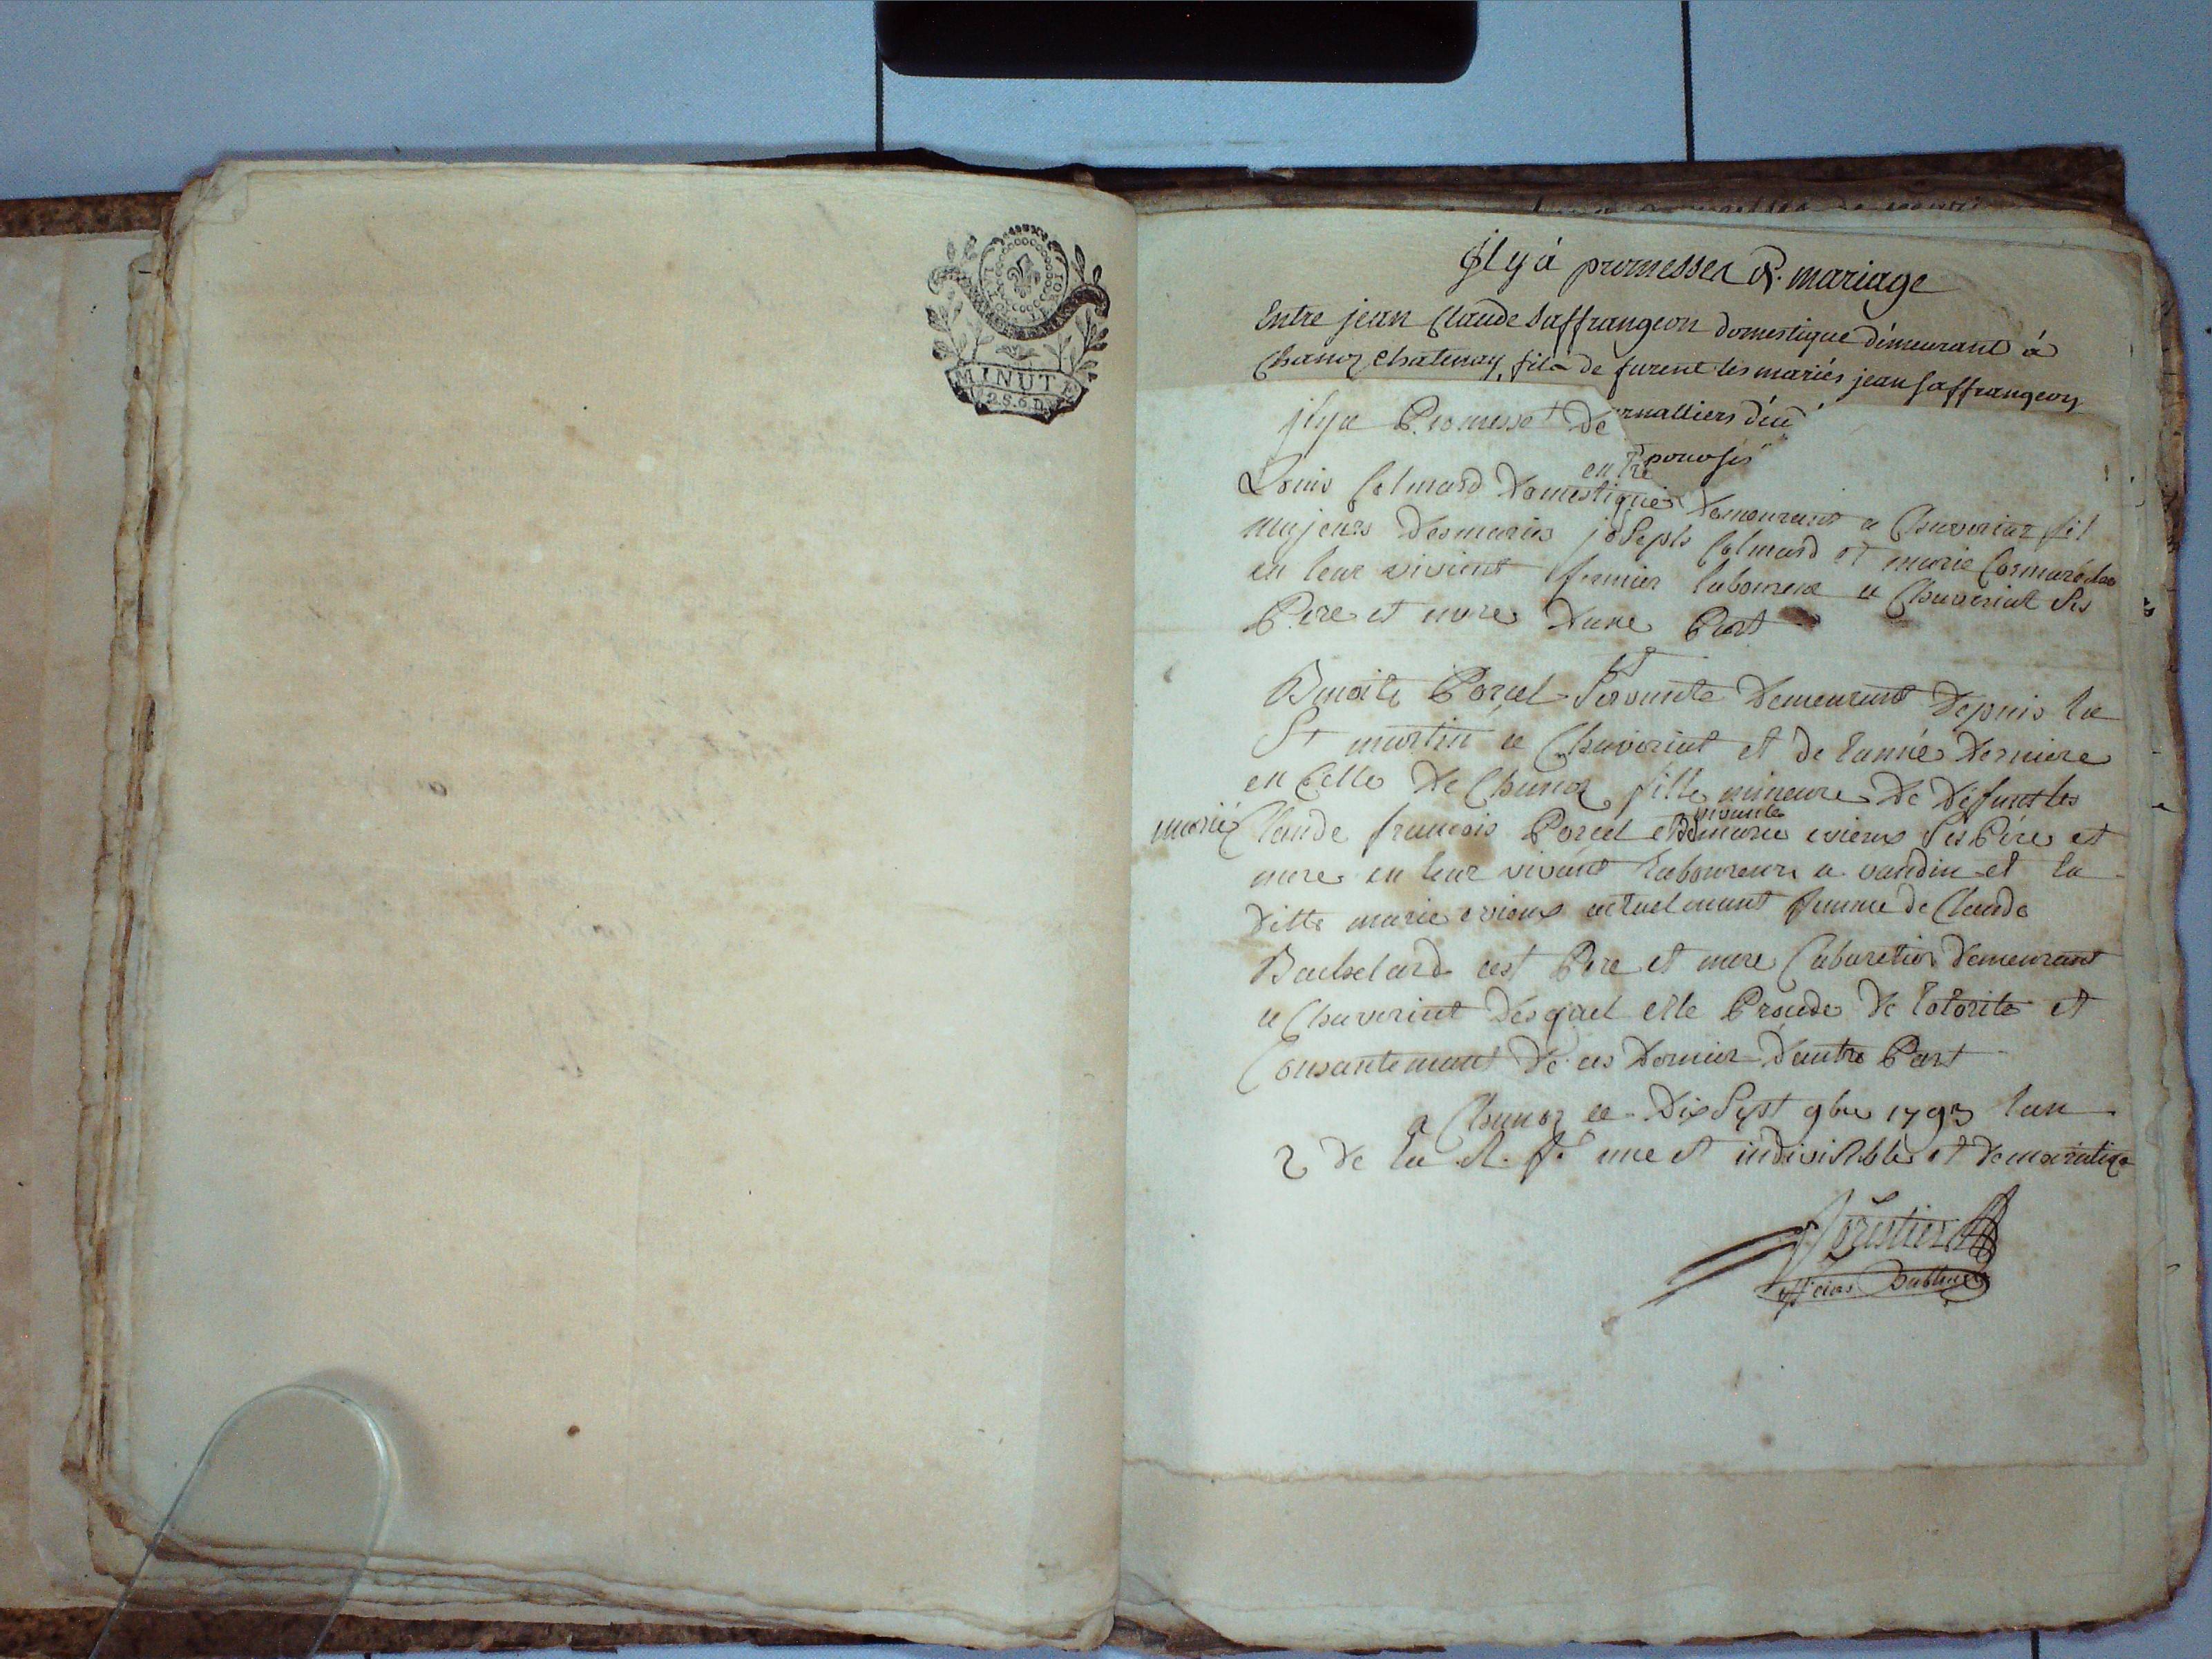 LA LOI LE ROI
MINUTE
2.S.6.D.
Il y à promesses de mariage
Entre jean Claude Saffrangeon domestique démeurant à
Chanoz Chatenay, fils de furent les mariés jean Saffrangeon
rnalliers d'eu
pouosés
jlya Promesse De
entre
Louis Colmard Domestique Demeurant a Chaveriat fil
majeurs Desmaries joseph Colmard et marie Cormaréche
en leur vivient fermier laboureur a Chaveriat Ses
Pere et mere Dune Part
et
Benoite Porcel Servante Demeurant Depuis la
St martin a Chaveriat et de lanneé Derniere
en Celle De Chanoz fille mineure De Defunt les
marié Claude francois Porcel et De marie vivante evieux Ses Pére et
mere en leur vivant laboureur a vandin et la
Ditte marie evieux actuelmant femme de Claude
Bachelard cest Pere et mere Cabaretier Demeurant
a Chaveriat Desquel elle Prende De lotorite et
Consantemant De ces Dernier Dautre Part
a Chanoz ce Dix Sept 9bre 1793 lan
2 De la R. fe une et indivisible et Démocratiqe
forestier
officier Publique